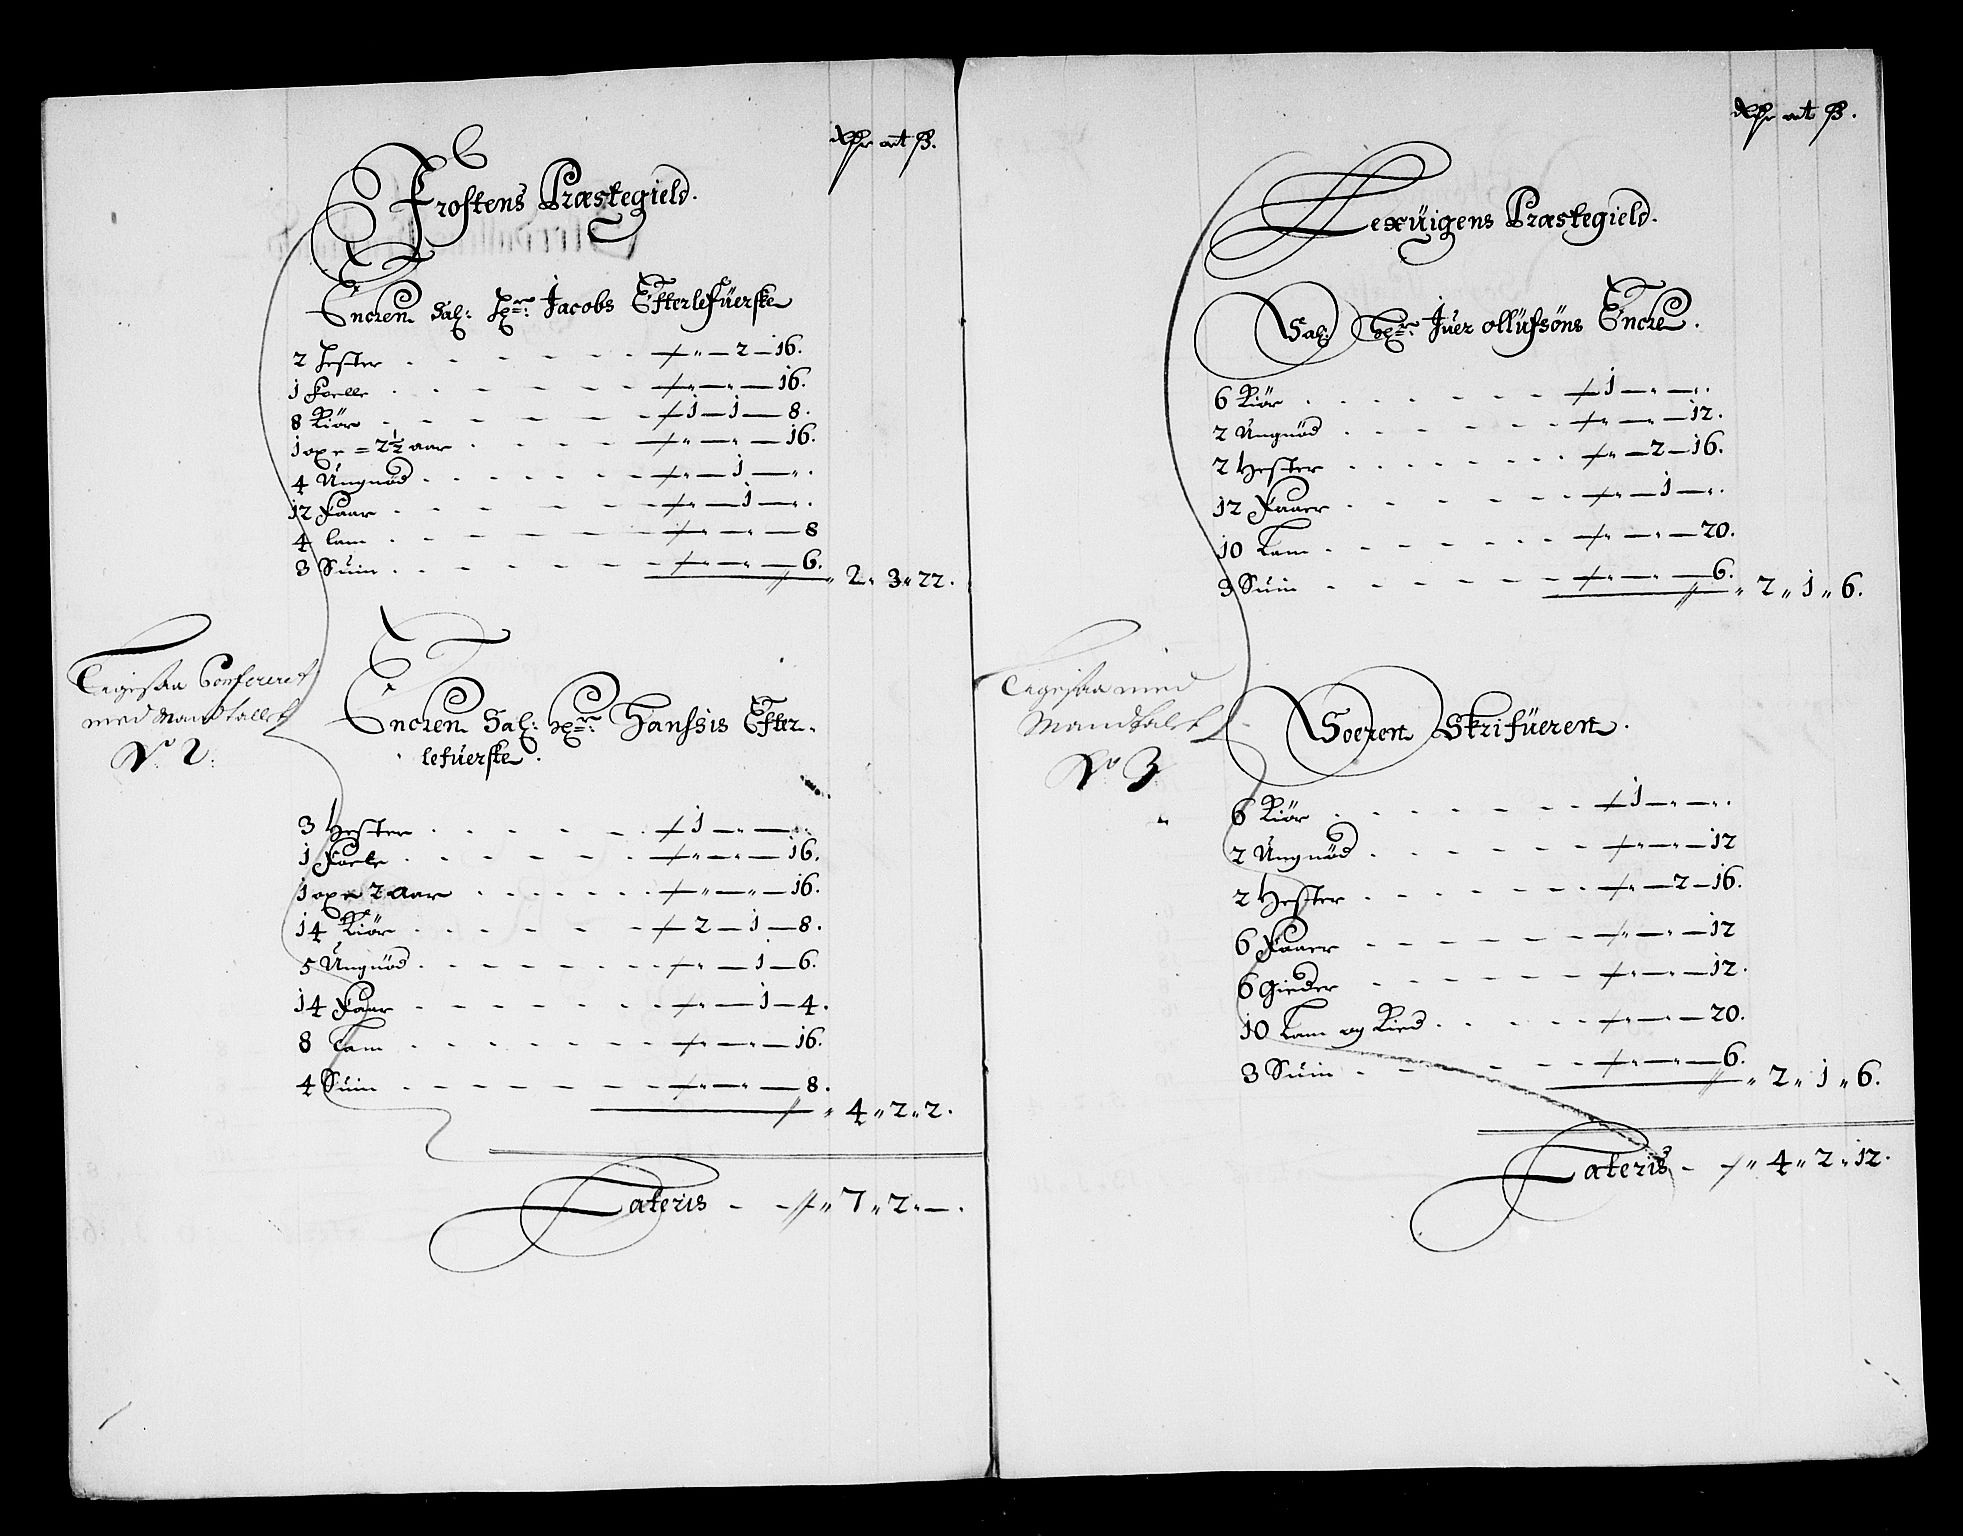 Rdr ort ß.
Frostens Præstegield.
Encken Sal: Hr: Jacobs Efterlefüerske
2 Hester - - - „ — 2 — 16.
1 Foelle - - - „ — „ — 16.
8 Kiör - - - 1 — 1 — 8.
1 oxe = 2½ aar - - - „ — „ — 16.
4 Ungnöd - - - „ — 1 — „.
12 Faar - - - „ — 1 — „.
4 lam - - - „ — „ — 8
3 Suin - - - „ — „ — 6.
„ 2 „ 3 „ 22.
Confereret
med Mandtallet
No. 2.
Encken Sal: Hr: Hansis Efter-
lefüerske.
3 Hester - - - 1 — „ — „
1 Foele - - - „ — „ — 16.
1 oxe 2 aar - - - „ — „ — 16.
14 Kiör - - - 2 — 1 — 8.
5 Ungnöd - - - „ — 1 — 6.
14 Faar - - - „ — 1 — 4.
8 Lam - - - „ — „ — 16.
4 Suin - - - „ — „ — 8.
„ 4 „ 2 „ 2.
Lateris - - „ 7 „ 2 „ — .
Rdr ort ß.
Lexuigens Præstegield.
Sal: Hr: Juer ollüfsöns Encke.
6 Kiör - - - 1 — „ — „.
2 Ungnöd - - - „ — „ — 12.
2 Hester - - - „ — 2 — 16.
12 Faaer - - - „ — 1 — „.
10 Lam - - - „ — „ — 20.
3 Suin - - - „ — „ — 6.
„ 2 „ 1 „ 6.
med
Mandtalet
No 3
Soeren Skrifüeren.
6 Kiör - - - 1 — „ — „.
2 Ungnöd - - - „ — „ — 12
2 Hester - - - „ — 2 — 16.
6 Faaer - - - „ — „ — 12
6 Gieder - - - „ — „ — 12.
10 Lam og Kied - - - „ — „ — 20.
3 Suin - - - „ — „ — 6.
„ 2 „ 1 „ 6.
Lateris - „ 4 „ 2 „ 12.